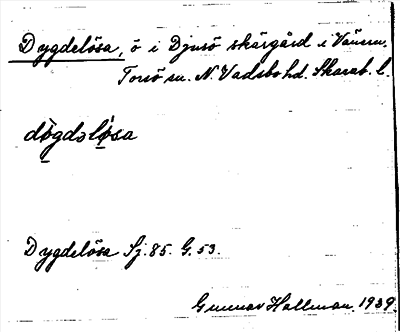 Dygdelösa, ö i Djurö skärgård i Vänern,
Torsö sn. N. Vadsbo hd. Skarab. l.
dø̀gdəløsa
Dygdelösa Sj. 85. G. 53.
Gunnar Hallman. 1939.